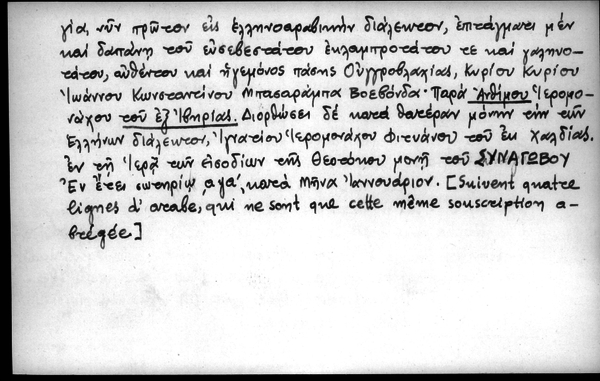 γία, νῦν πρῶτον εἰς ἑλληνοαραβικὴν διάλεκτον, ἐπιτάγματι μὲν
καὶ δαπάνῃ τοῦ εὐσεβεστάτου ἐκλαμπροτάτου τε καὶ γαληνο-
τάτου, αὐθέντου καὶ ἡγεμόνος πάσης Οὐγγροβλαχίας, Κυρίου Κυρίου
Ἰωάννου Κωνσταντίνου Μπασαράμπα Βοεβόνδα· Παρὰ Ἀνθίμου Ἱερομο-
νάχου τοῦ ἐξ Ἰβηρίας. Διορθώσει δὲ κατὰ θατέραν μόνην τὴν τῶν
Ἑλλήνων διάλεκτον, Ἰγνατίου Ἱερομονάχου Φιτυάνου τοῦ ἐκ Χαλδίας.
ἐν τῇ Ἱερᾷ τῶν εἰσοδίων τῆς Θεοτόκου μονῇ τοῦ ΣΥΝΑΓΩΒΟΥ
Ἐν ἔτει σωτηρίῳ ͵αψα΄, κατὰ Μῆνα Ἰαννουάριον. [Suivent quatre
lignes d'arabe, qui ne sont que cette même souscription a-
brégée]